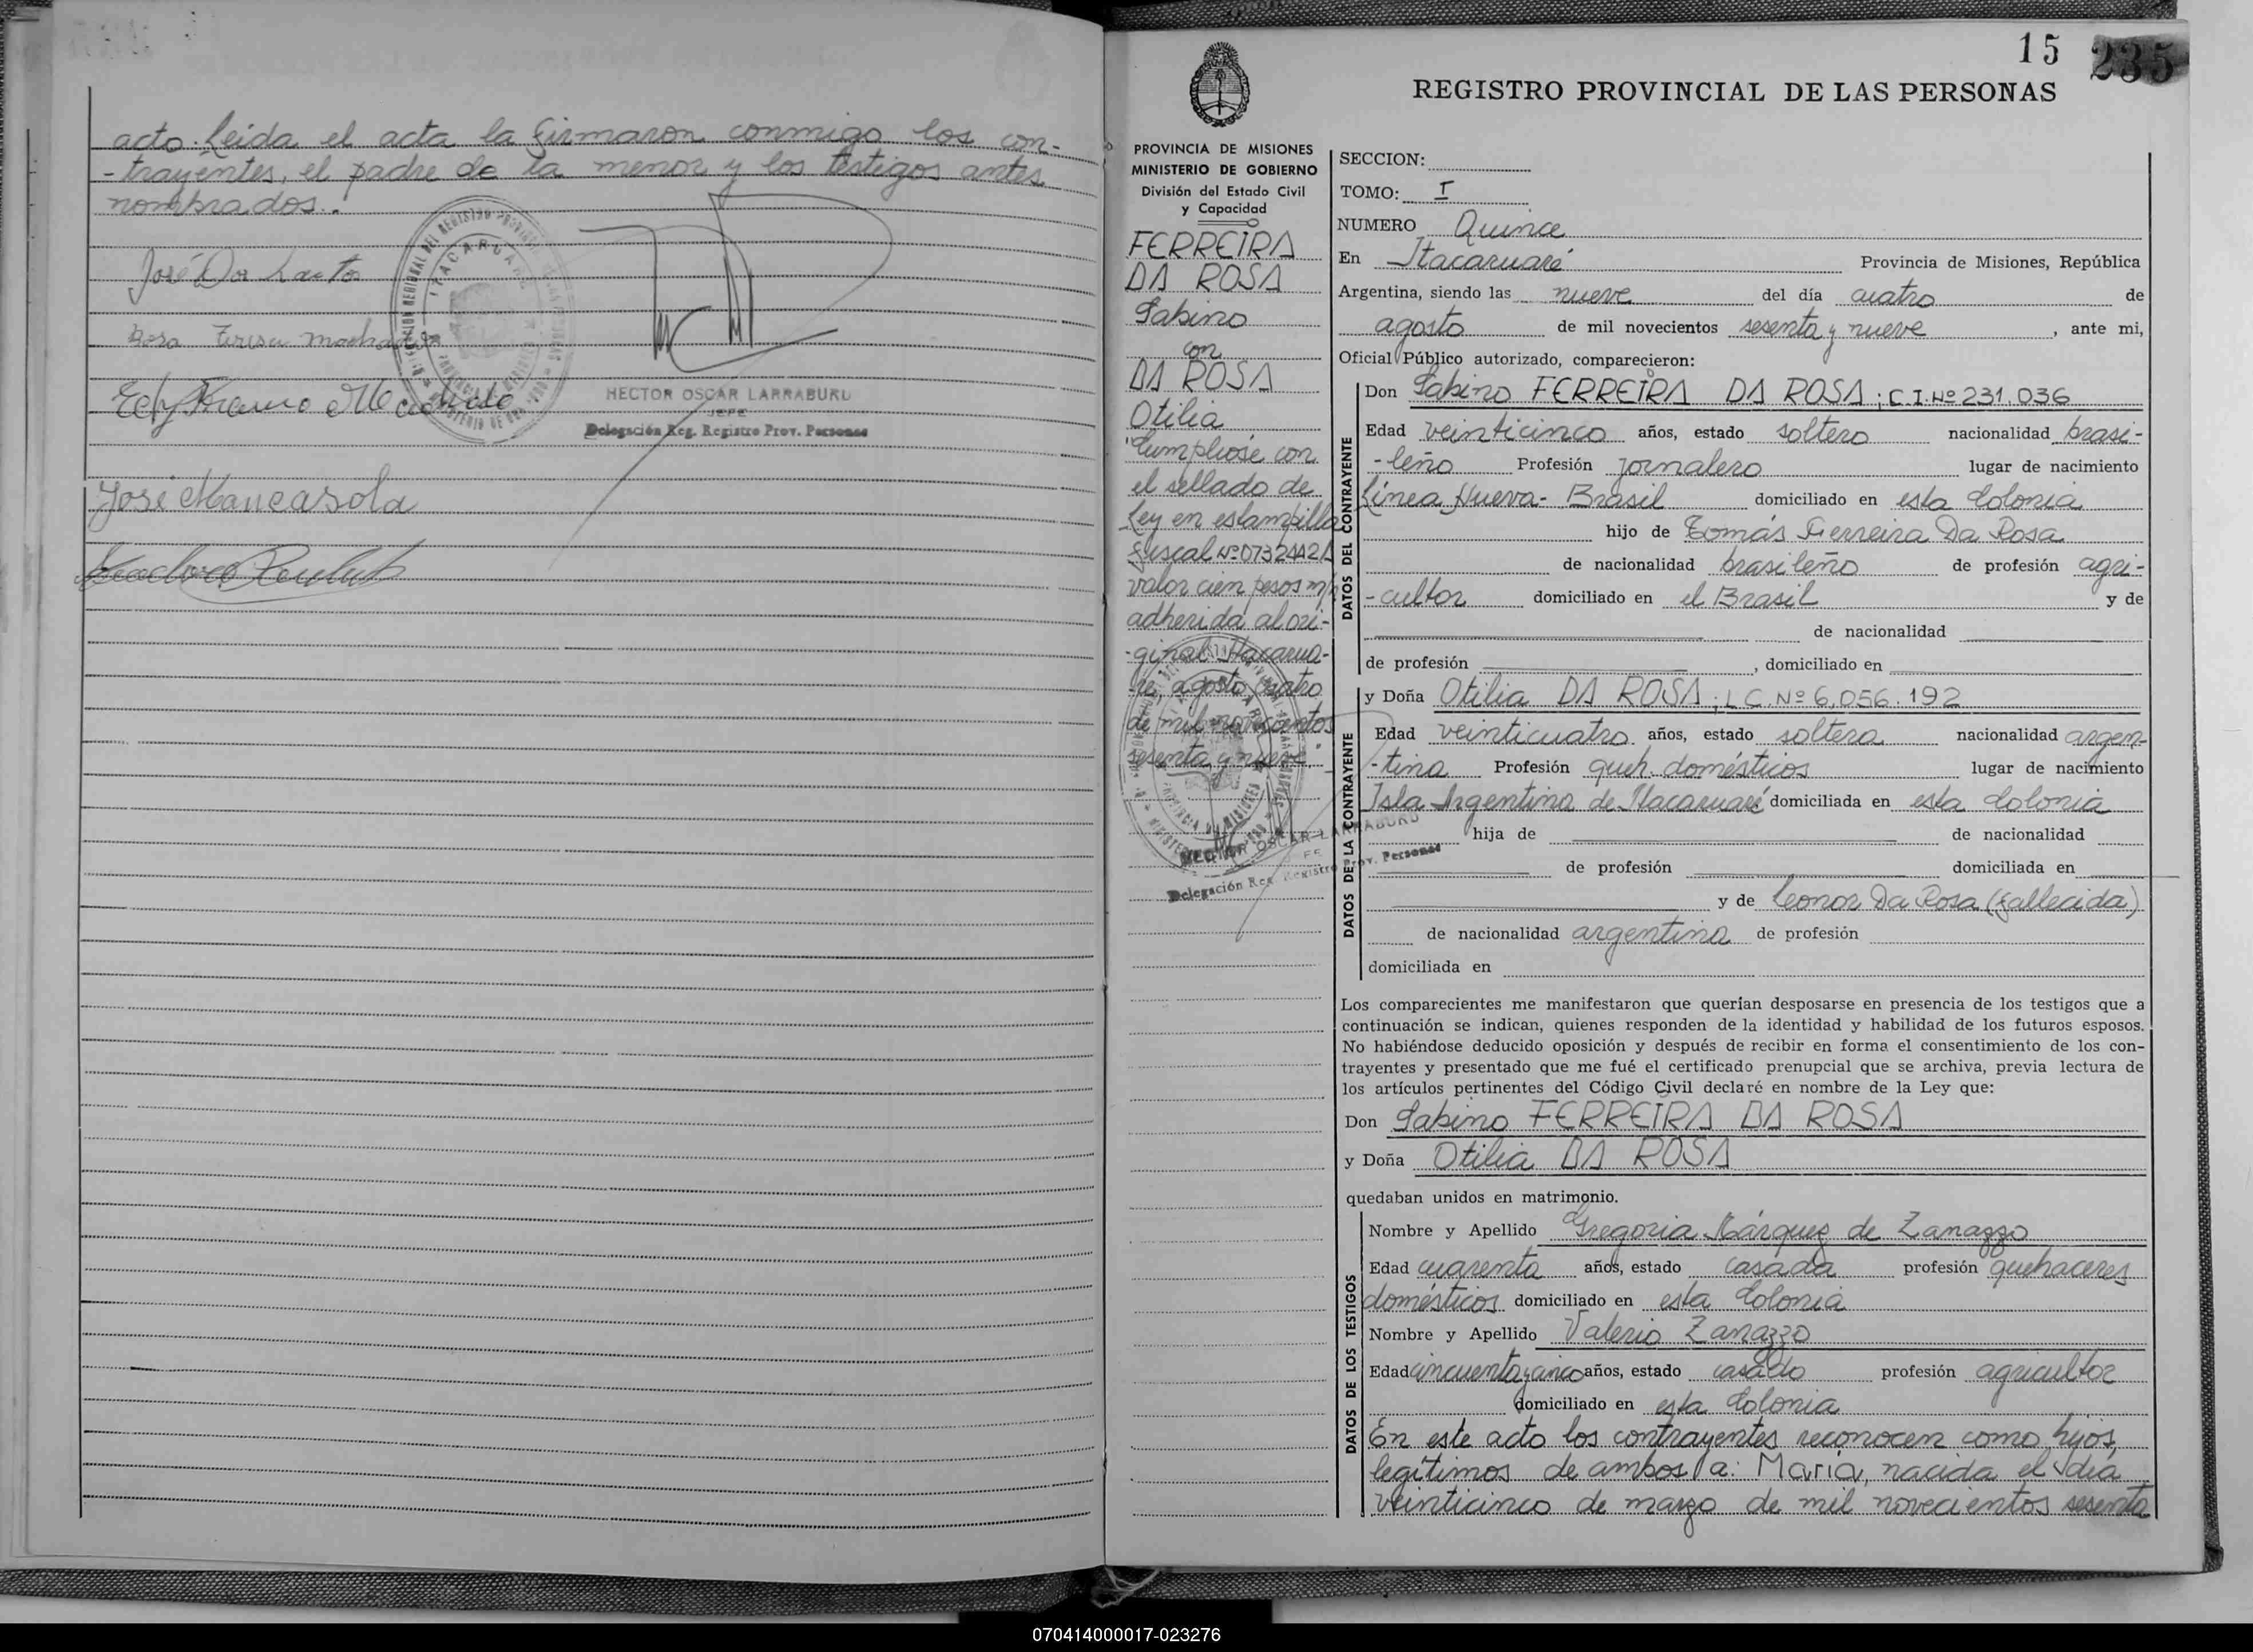 acto. Leída el acta la firmaron conmigo los con-
-trayentes, el padre de la menor y los testigos antes
nombrados.
José Da
Rosa Teresa Machado
HECTOR OSCAR LARRABURU
JEFE
Delegación Reg. Registro Prov. Personas
José Mancasola
15 235
REGISTRO PROVINCIAL DE LAS PERSONAS
PROVINCIA DE MISIONES
MINISTERIO DE GOBIERNO
División del Estado Civil
y Capacidad
FERREIRA
DA ROSA
Sabino
con
DA ROSA
Otilia
"Cumplióse con
el sellado de
Ley en estampilla
fiscal Nº 0732442A
valor cien pesos m/n
adherida al ori-
-ginal Itacarua-
-ré, agosto, cuatro
de mil novecientos
sesenta y nueve"
HECTOR OSCAR LARRABURU
Delegación Reg. Registro Prov. Personas
SECCION:
TOMO: I
NUMERO Quince
En Itacaruaré Provincia de Misiones, República
Argentina, siendo las nueve del día cuatro de
agosto de mil novecientos sesenta y nueve, ante mi,
Oficial Público autorizado, comparecieron:
DATOS DEL CONTRAYENTE
Don Sabino FERREIRA DA ROSA; C.I. Nº 231.036
Edad veinticinco años, estado soltero nacionalidad brasi-
-leño Profesión jornalero lugar de nacimiento
Línea Nueva - Brasil domiciliado en esta Colonia
hijo de Tomás Ferreira Da Rosa
de nacionalidad brasileño de profesión agri-
-cultor domiciliado en el Brasil y de
de nacionalidad
de profesión , domiciliado en
DATOS DE LA CONTRAYENTE
y Doña Otilia DA ROSA; L.C. Nº 6.056.192
Edad veinticuatro años, estado soltera nacionalidad argen-
-tina Profesión queh. domésticos lugar de nacimiento
Isla Argentina de Itacaruaré domiciliada en esta Colonia
hija de de nacionalidad
de profesión domiciliada en
y de Leonor Da Rosa (fallecida)
de nacionalidad argentina de profesión
domiciliada en
Los comparecientes me manifestaron que querían desposarse en presencia de los testigos que a
continuación se indican, quienes responden de la identidad y habilidad de los futuros esposos.
No habiéndose deducido oposición y después de recibir en forma el consentimiento de los con-
trayentes y presentado que me fué el certificado prenupcial que se archiva, previa lectura de
los artículos pertinentes del Código Civil declaré en nombre de la Ley que:
Don Sabino FERREIRA DA ROSA
y Doña Otilia DA ROSA
quedaban unidos en matrimonio.
DATOS DE LOS TESTIGOS
Nombre y Apellido Gregoria Márquez de Zanazzo
Edad cuarenta años, estado casada profesión quehaceres
domésticos domiciliado en esta Colonia
Nombre y Apellido Valerio Zanazzo
Edad cincuenta y cinco años, estado casado profesión agricultor
domiciliado en esta Colonia
En este acto los contrayentes reconocen como hijos
legítimos de ambos a: María, nacida el día
veinticinco de marzo de mil novecientos sesenta
070414000017-023276